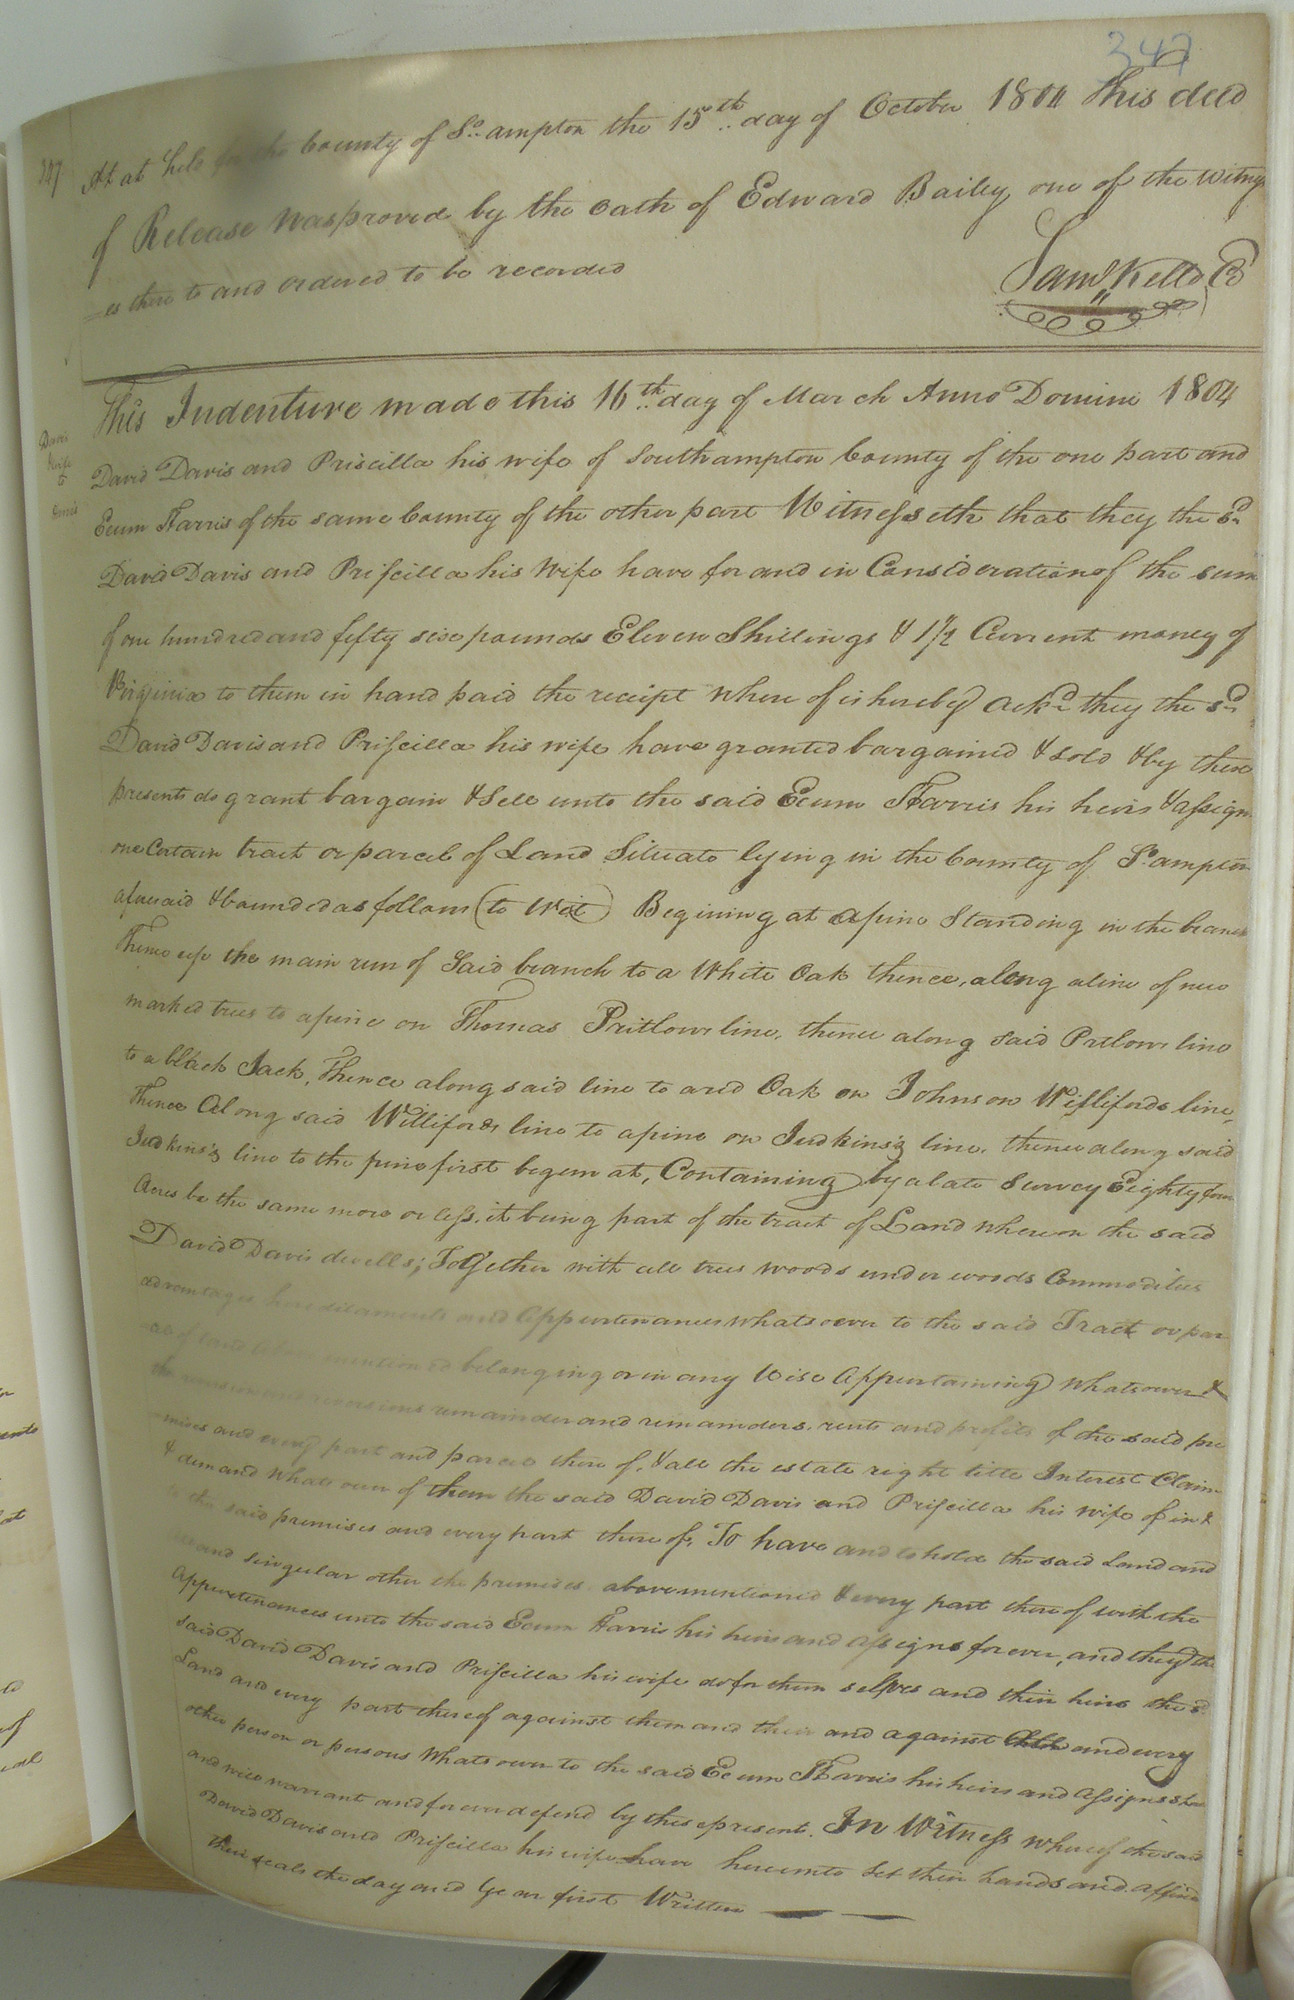 347
347
At at held for the County of So. ampton the 15th day of October 1804 This deed
of Release was proved by the oath of Edward Bailey one of the witnes
es there to and ordered to be recorded
Saml Kello CC
This Indenture made this 16th day of March Anno Domini 1804
Davis
wife
to
David Davis and Priscilla his wife of Southampton County of the one part and
Ecum Harris of the same County of the other part Witnesseth that they the sd.
David Davis and Priscilla his Wife have for and in Consideration of the sum
of one hundred and fifty six pounds Eleven Shillings & 1½ Current money of
Virginia to them in hand paid the receipt where of is hereby Ackd. they the sd.
David Davis and Priscilla his wife have granted bargained & sold & by these
presents do grant bargain & Sell unto the said Ecum Harris his heirs & assigns
one Certain tract or parcel of Land Situate lying in the County of So. ampton
aforesaid & bounded as follows (to Wit) Begining at a pine Standing in the branch
Thence up the main run of Said branch to a White Oak thence, along a line of new
marked trees to a pine on Thomas Pritlows line, thence along said Pretlows line
to a black Jack, Thence along said line to a red Oak on Johnson Willifords line,
Thence Along said Willifords line to a pine on Judkins's line, thence along said
Judkins's line to the pine first begun at, Containing by a late Survey Eighty four
Acres be the same more or less, it being part of the tract of Land whereon the said
David Davis dwells; Together with all trees woods under woods Commodities
advantages hereditaments and Appurtenances whatsoever to the said Tract or par
cel of land above mentioned belonging or in any Wise Appurtaining whatsoever &
the reversion reversions remainder and remainders, rents and profits of the said pre
mises and every part and parcel there of, & all the estate right title Interest Claim
& demand whatsoever of them the said David Davis and Priscilla his wife of in &
to the said premises and every part there of, To have and to hold the said Land and
all and singular other the premises above mentioned & every part there of with the
Appurtenances unto the said Ecum Harris his heirs and assigns for ever, and they the
said David Davis and Priscilla his wife do for them selves and their heirs the sd.
Land and every part thereof against them and their and against and every
other person or persons Whatsoever to the said Ecum Harris his heirs and Assigns shall
and will warrant and forever defend by these present. In Witness whereof the said
David Davis and Priscilla his wife have hereunto Set their hands and affixed
their seals the day and Year first Written